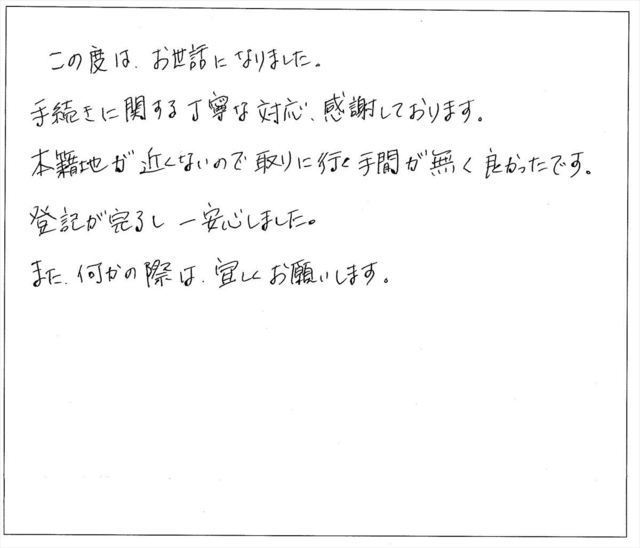 この度は、お世話になりました。
手続きに関する丁寧な対応、感謝しております。
本籍地が近くないので取りに行く手間が無く良かったです。
登記が完了し一安心しました。
また、何かの際は、宜しくお願いします。